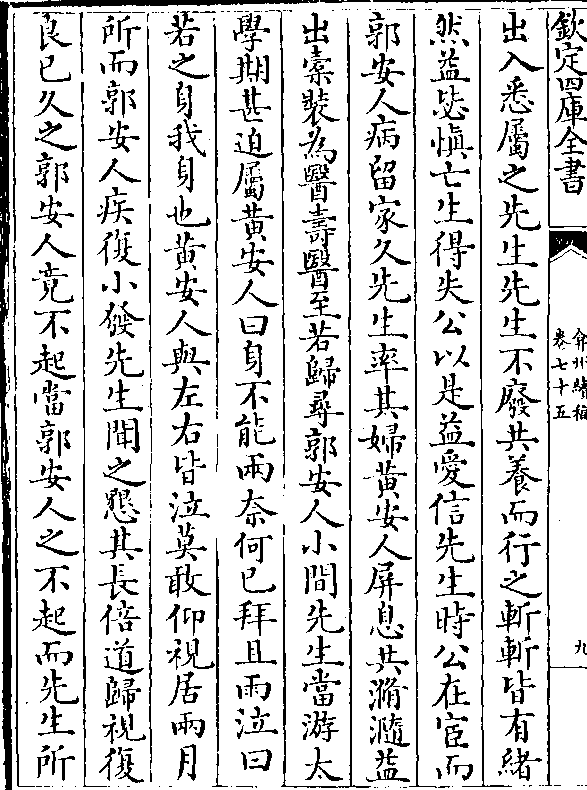 欽定四庫全書
弇州續稿
卷七十五
九
出入悉屬之先生先生不廢共養而行之斬斬皆有緒
然益毖慎亡生得失公以是益愛信先生時公在宦而
郭安人病留家久先生率其婦黄安人屏息共滫瀡益
出橐裝為醫壽醫至若歸尋郭安人小間先生當游太
學期甚迫屬黄安人曰身不能兩奈何已拜且雨泣曰
若之身我身也黄安人與左右皆泣莫敢仰視居兩月
所而郭安人疾復小發先生聞之懇其長倍道歸視復
良已久之郭安人竟不起當郭安人之不起而先生所